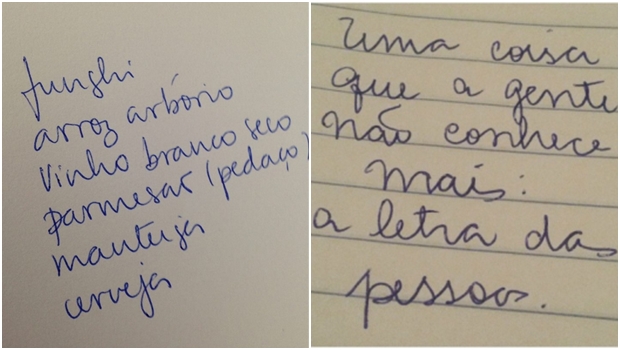 funghi
arroz arbório
vinho branco seco
parmesão (pedaço)
manteiga
cerveja
Uma coisa
que a gente
não conhece
mais:
a letra das
pessoas.